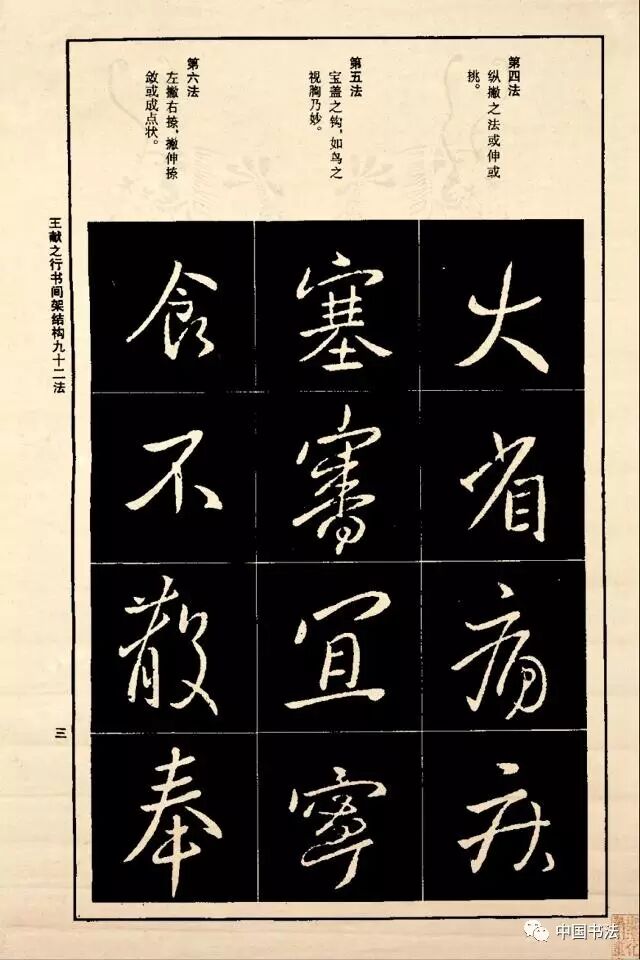 第四法
纵撇之法或伸或
挑。
第五法
宝盖之钩，如鸟之
视胸乃妙。
第六法
左撇右捺，撇伸捺
敛或成点状。
火
省
疡
疾
塞
审
宜
寧
食
不
散
奉
王献之行书间架结构九十二法
三
中国书法